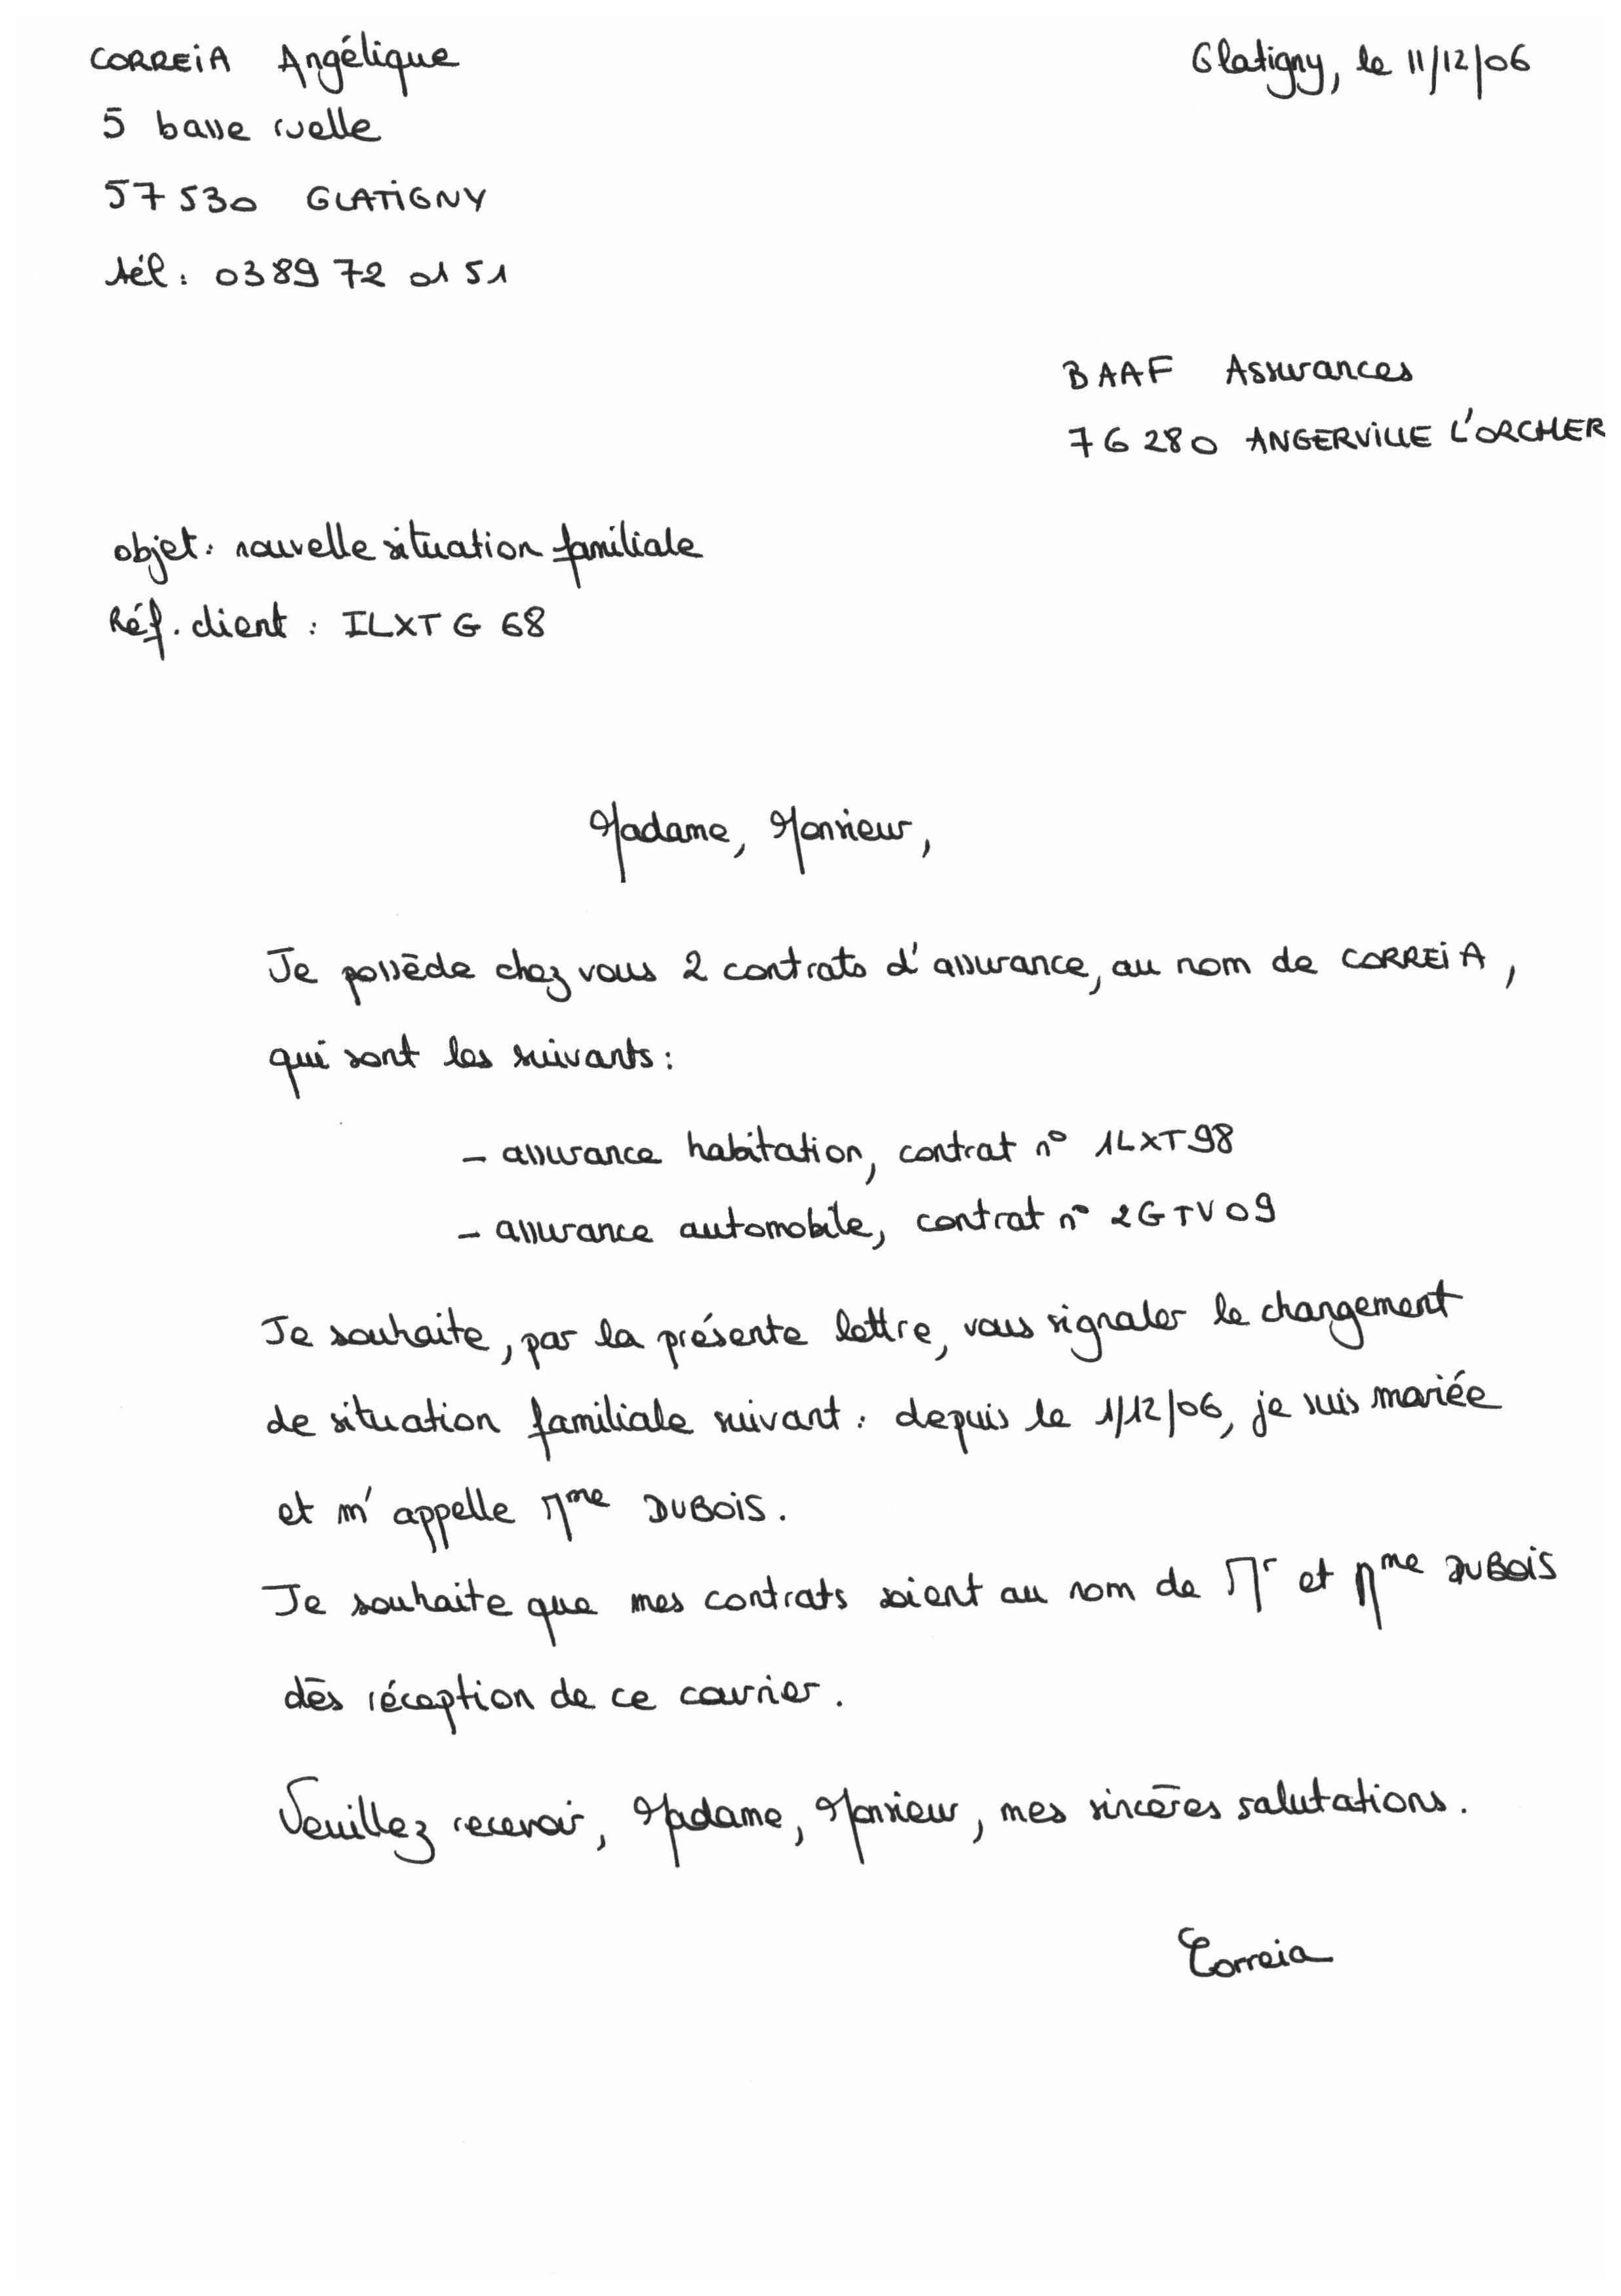 CORREIA Angélique
Glatigny, le 11/12/06
5 basse ruelle
57530 GLATIGNY
tél : 03 89 72 01 51
BAAF Assurances
76280 ANGERVILLE L'ORCHER
objet : nouvelle situation familiale
Réf. client : ILXTG 68
Madame, Monsieur,
Je possède chez vous 2 contrats d'assurance, au nom de CORREIA,
qui sont les suivants :
- assurance habitation, contrat n° 1LXT98
- assurance automobile, contrat n° 2GTV09
Je souhaite, par la présente lettre, vous signaler le changement
de situation familiale suivant : depuis le 1/12/06, je suis mariée
et m'appelle Mme DUBOIS.
Je souhaite que mes contrats soient au nom de Mr et Mme DUBOIS
dès réception de ce courrier.
Veuillez recevoir, Madame, Monsieur, mes sincères salutations.
Correia